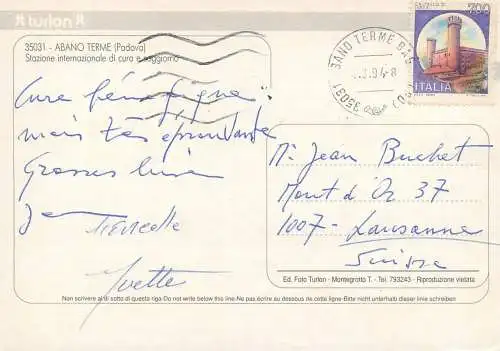 turlon
35031 - ABANO TERME (Padova)
Stazione internazionale di cura e soggiorno
700
ITALIA
35031 ABANO TERME
Cure bénéfique
mais très éprouvante
Grosses bises
Yvette
Mr Jean Buchet
Mont d'Or 37
1007 - Lausanne
Suisse
Ed. Foto Turlon - Montegrotto T. - Tel. 793243 - Riproduzione vietata
Non scrivere al di sotto di questa riga-Do not write below this line-Ne pas écrire au dessous de cette ligne-Bitte nicht unterhalb dieser linie schreiben